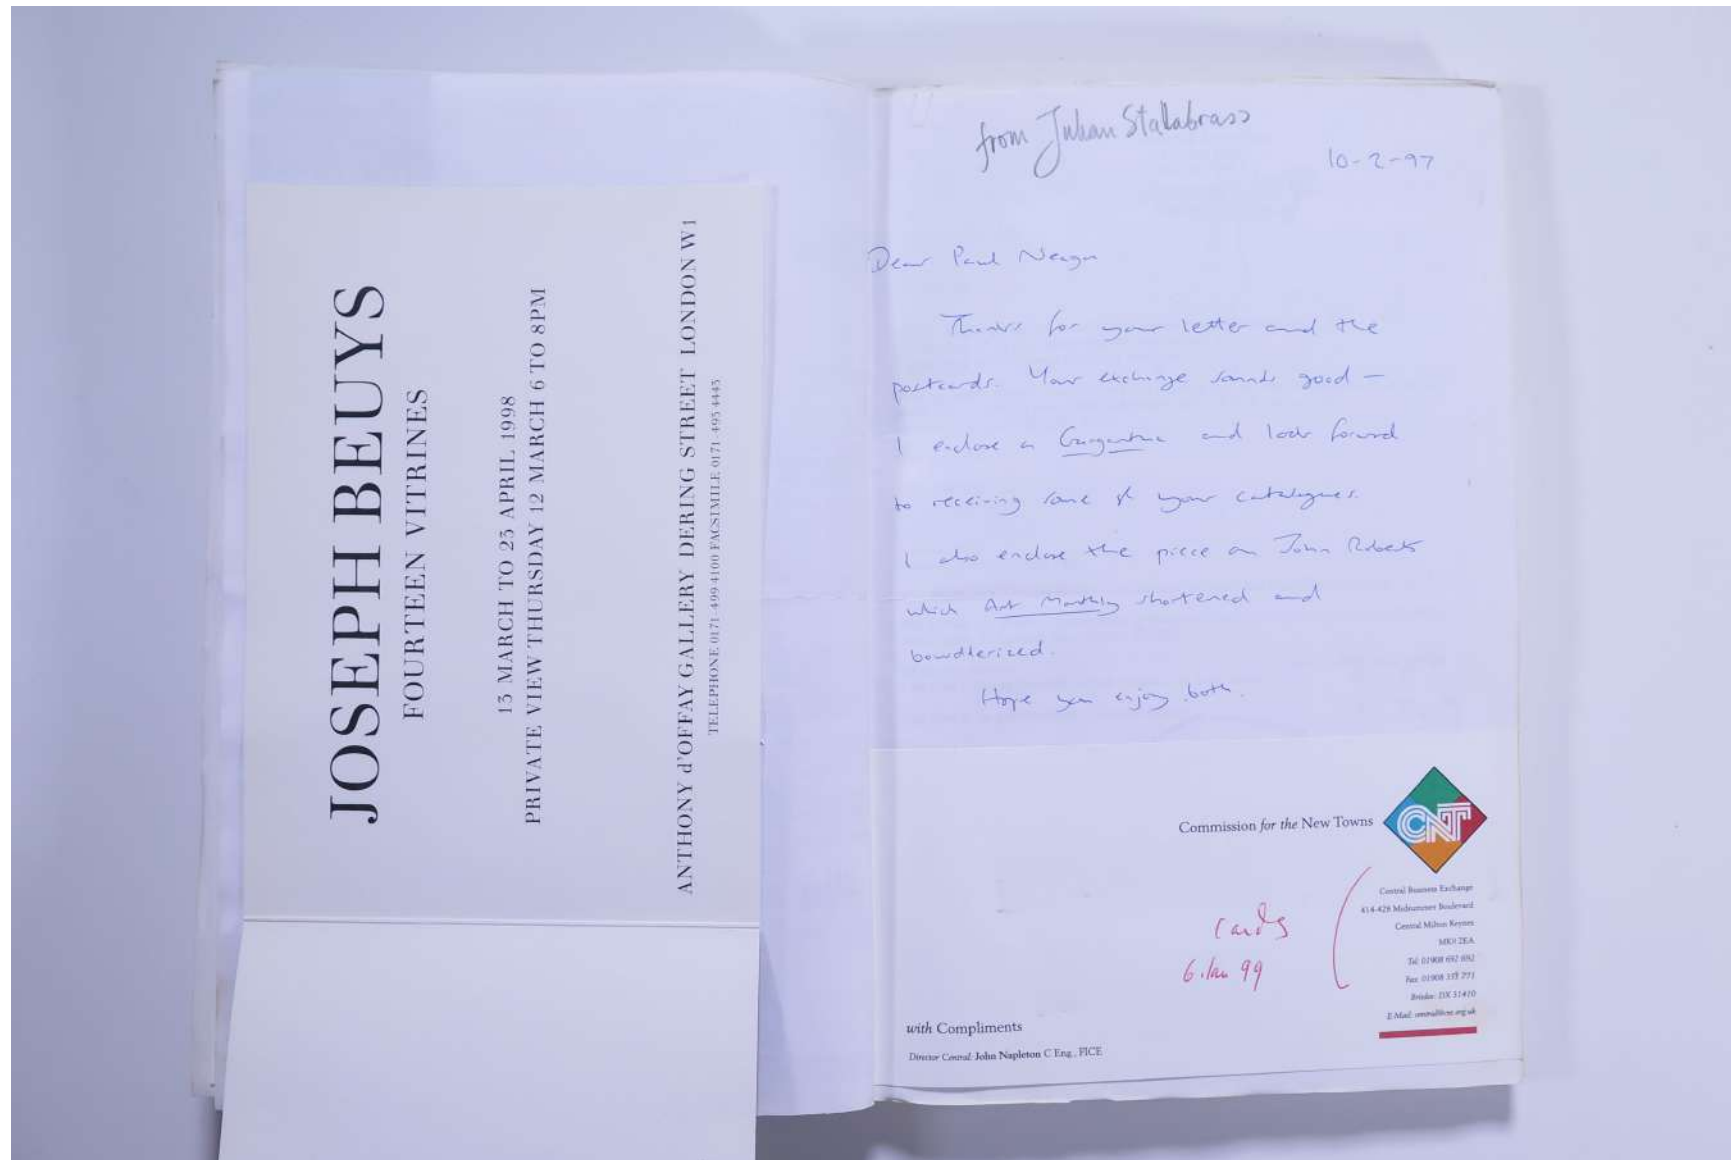 JOSEPH BEUYS
FOURTEEN VITRINES
13 MARCH TO 23 APRIL 1998
PRIVATE VIEW THURSDAY 12 MARCH 6 TO 8PM
ANTHONY d'OFFAY GALLERY DERING STREET LONDON W1
TELEPHONE 0171-499 4100 FACSIMILE 0171-493 4443
from Julian Stallabrass
10-2-97
Dear Paul Neagu
Thanks for your letter and the
postcards. Your exchange sounds good —
I enclose a Gargantua and look forward
to receiving some of your catalogues.
I also enclose the piece on John Roberts
which Art Monthly shortened and
bowdlerized.
Hope you enjoy both.
Commission for the New Towns
CNT
Central Business Exchange
414-428 Midsummer Boulevard
Central Milton Keynes
MK9 2EA
Tel: 01908 692 692
Fax: 01908
DX 31410
E-Mail:
cards
6. Jan 99
with Compliments
Director Central: John Napleton C Eng., FICE